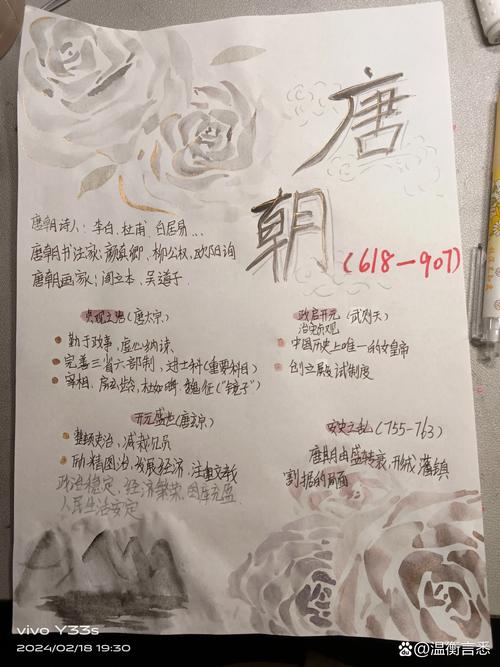 唐
朝
(618—907)
唐朝诗人：李白、杜甫、白居易…
唐朝书法家：颜真卿、柳公权、欧阳询
唐朝画家：阎立本、吴道子.
贞观之治(唐太宗)
勤于政事，虚心纳谏
完善三省六部制、进士科(重要科目)
宰相、房玄龄、杜如晦、魏征("镜子")
政启开元(武则天)
治宏贞观
中国历史上唯一的女皇帝
创立殿试制度
开元盛世(唐玄宗)
整顿吏治，减裁冗员
励精图治，发展经济，注重文教
政治稳定，经济繁荣，国库充盈
人民生活安定
安史之乱(755-763)
唐朝由盛转衰，形成藩镇
割据的局面
vivo Y33s
2024/02/18 19:30
@温衡言悉